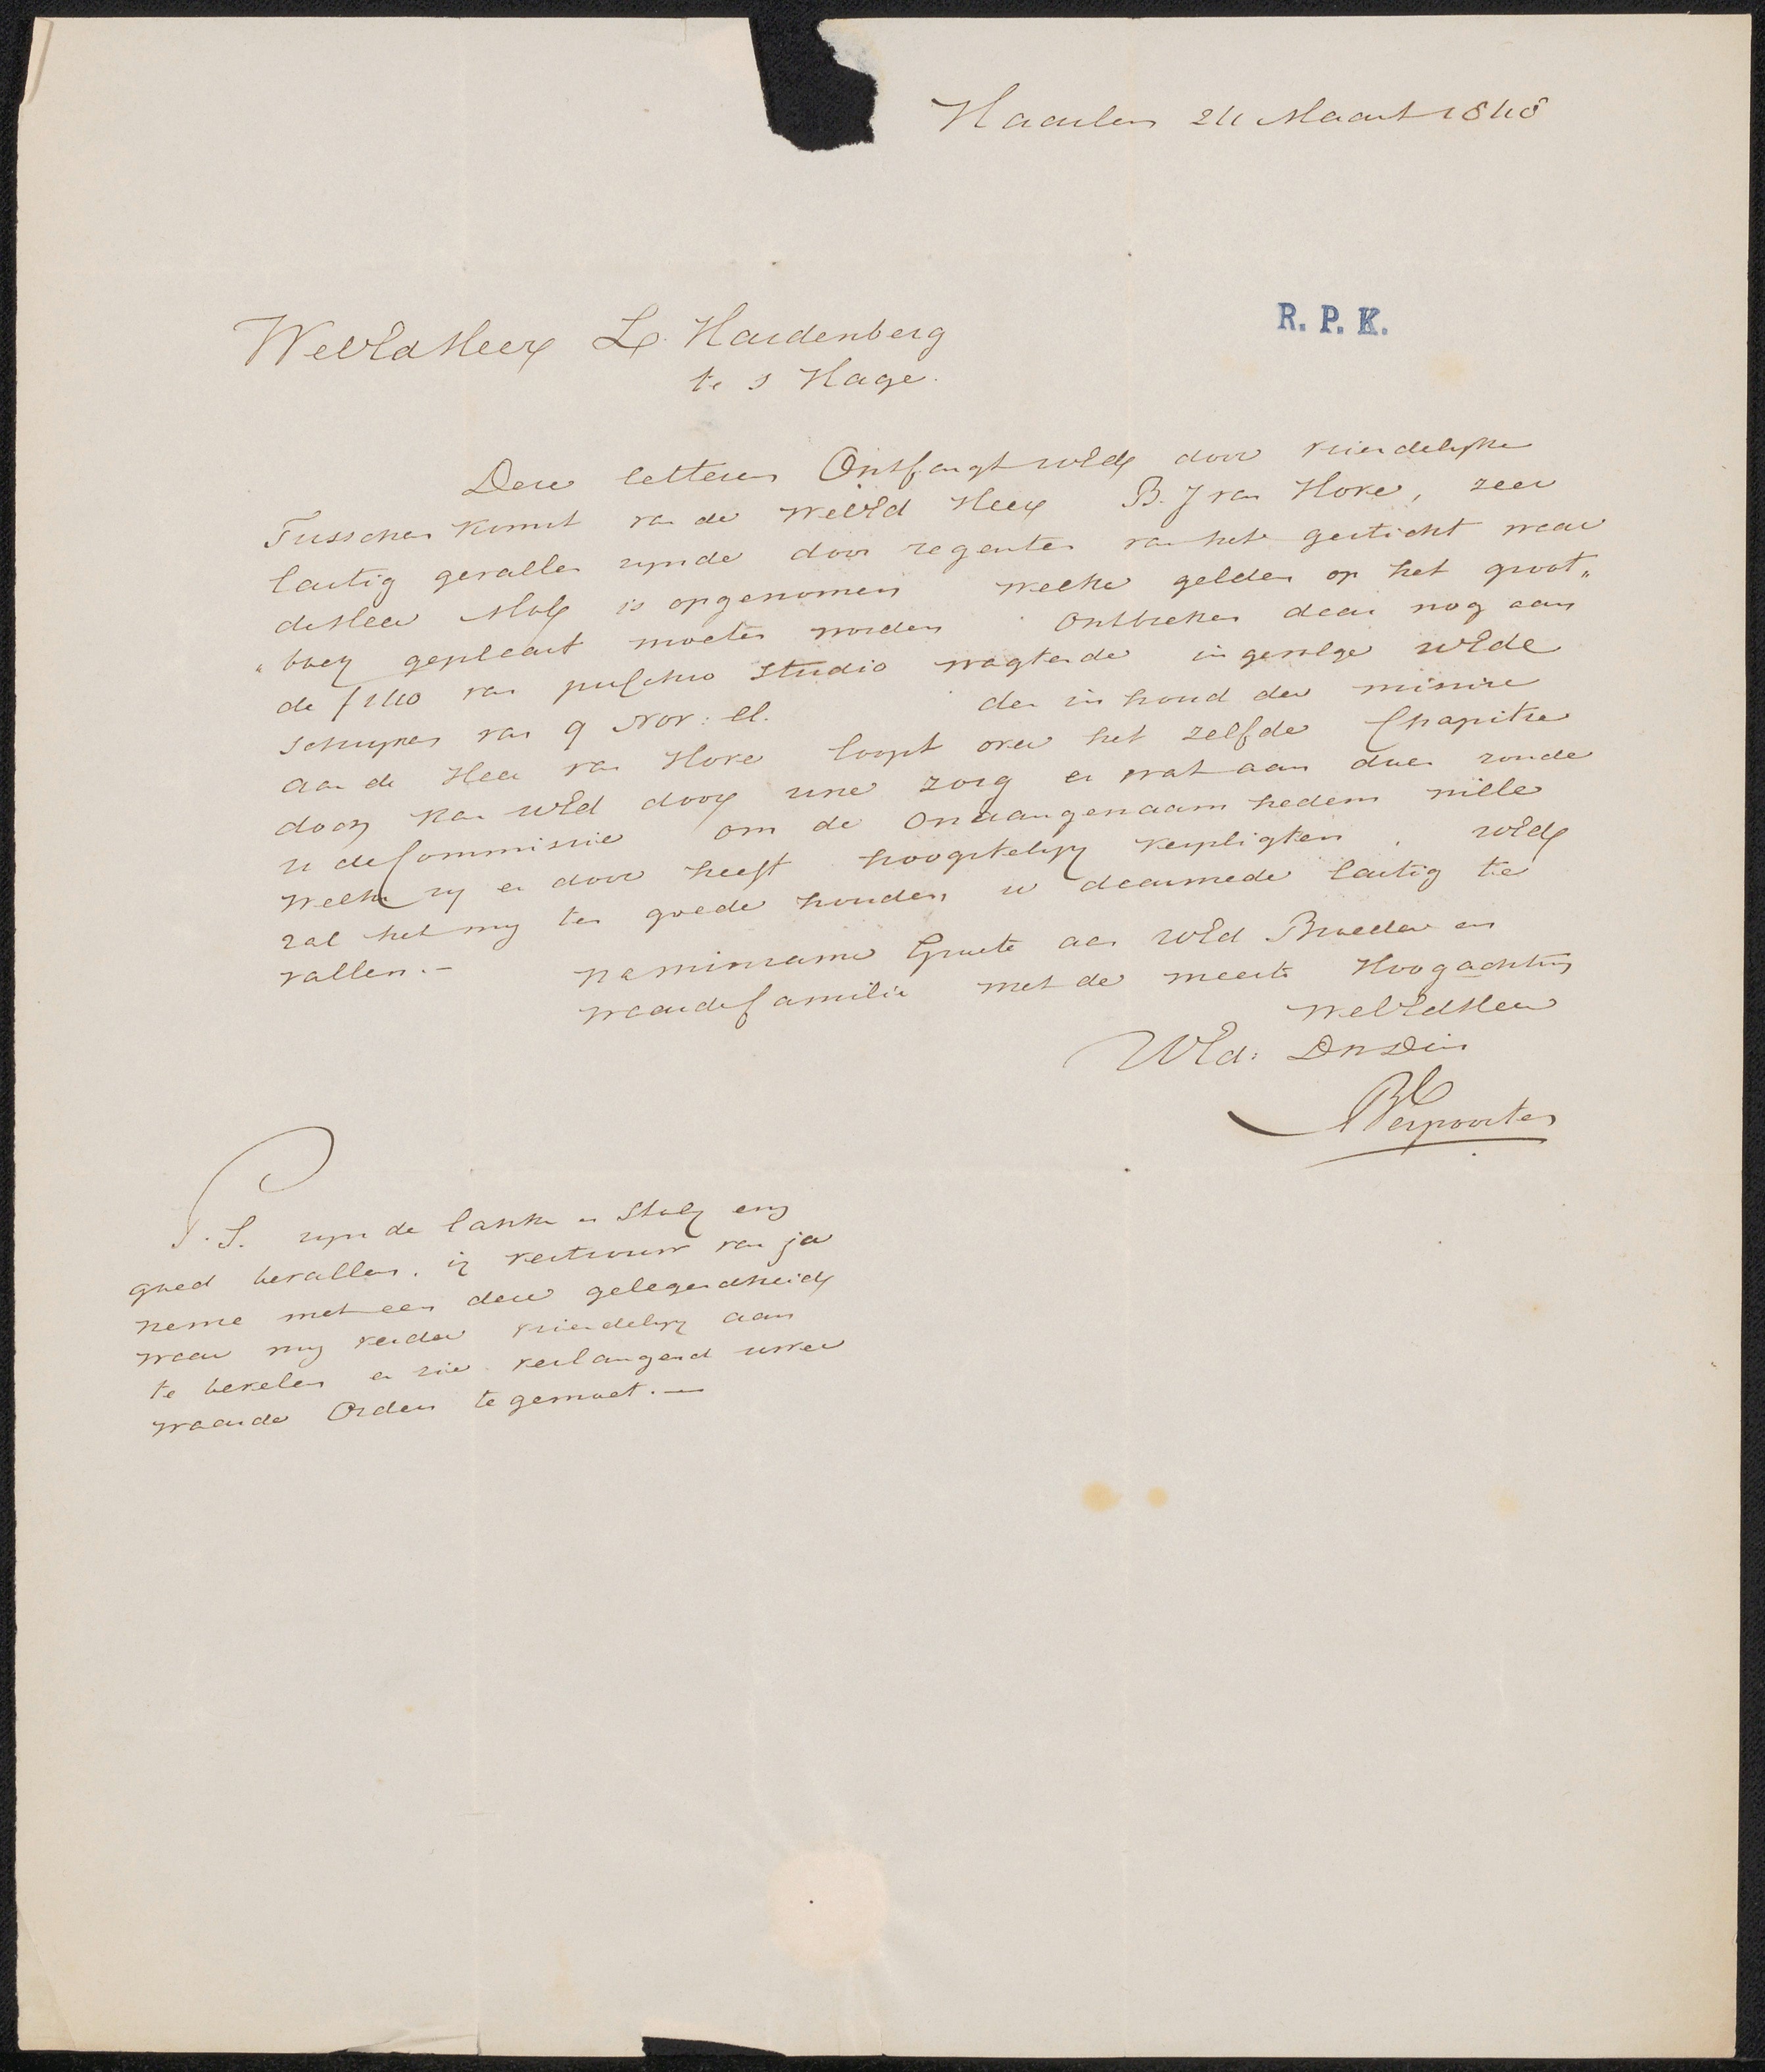 Haarlem 24 Maart 1848
R. P. K.
WelEdHeer L. Hardenberg
te s Hage.
Deze letteren Ontfangt uwEd door vriendelyke
Tusschen komst van de WelEd Heer B. J van Hove, zeer
lastig gevallen zynde door regenten van het gesticht waar
de Heer Moly is opgenomen welke gelden op het groot„
„boek geplaast moeten worden ontbreken daar nog aan
de f 140 van pulchro studio wagtende ingevolge uwEde
schryven van 9 Nov: ll. den inhoud der missive
aan de Heer van Hove loopt over het zelfde Chapitre
doch kan uwEd door uwe zorg er wat aan doen zoude
u de Commissie om de Onaangenaamheden wille
welke zy er door heeft hoogstelyk verpligten, uwEd
zal het my ten goede houden u daarmede lastig te
vallen.-
na minzame Groete aan uwEd Broeder en
waarde familie met de meeste Hoogachting
WelEdHeer
UwEd: DwDien
Verpoorten
P. S. zyn de lakke en Stolk eng
goed bevallen. ik vertrouw van ja
neme met een deze gelegendheid
waar my verder vriendelyk aan
te bevelen en zie verlangend uwee
waarde Orders te gemoet. —